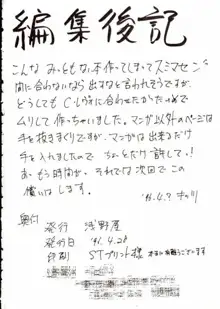 編集後記
こんな みっともない本作ってしまって スミマセン
間に合わないなら 出すなと言われそうですが、
どうしても C・レヴォに合わせたかったので
ムリして 作っちゃいました。マンガ以外のページは
手を抜きまくりですが、マンガは出来るだけ
手を入れましたので ちょとだけ許して!
あーもう時間が… それでは次回で この
償いは します。
奥付
発行 浅野屋
発行日 '96.4.28
印刷 STプリント様 本当に有難うございます